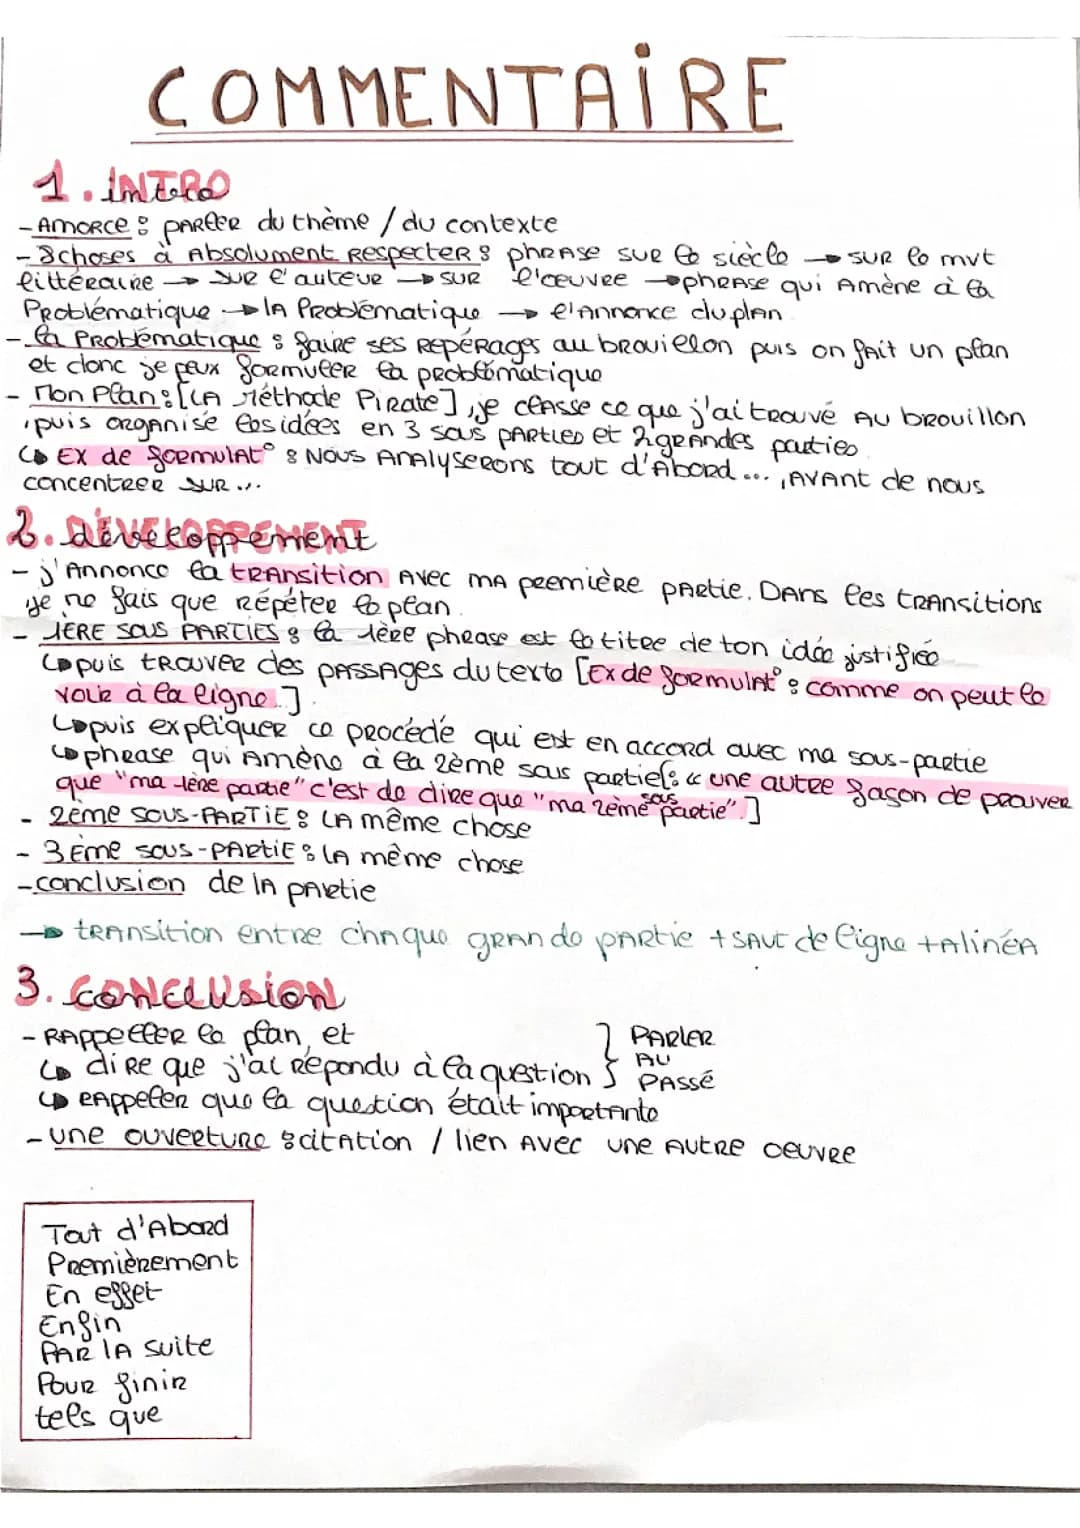 COMMENTAIRE
1. INTRO
intro
- Amorce : parler du thème / du contexte
- 8 choses à Absolument Respecter : phrase sur le siècle → sur le mvt
littéraire → sur l'auteur → sur l'œuvre → phrase qui Amène à la
Problématique → la Problématique → l'Annonce du plan
- la Problématique : faire ses Repérages au brouillon puis on fait un plan
et donc je peux formuler la problématique
- Mon Plan : [LA Méthode Pirate], je classe ce que j'ai trouvé Au brouillon
, puis organise les idées en 3 sous parties et 2 grandes parties
↳ Ex de formulat° : Nous Analyserons tout d'Abord ... , Avant de nous
concentrer sur ...
2. DÉVELOPPEMENT
développement
- j'Annonce la transition Avec ma première partie. Dans les transitions
je ne fais que répéter le plan
- 1ÈRE SOUS PARTIES : la 1ère phrase est le titre de ton idée justifiée
↳ puis trouver des passages du texte [Ex de formulat° : comme on peut le
voir à la ligne.]
↳ puis expliquer ce procédé qui est en accord avec ma sous-partie
↳ phrase qui Amène à la 2ème sous partie[: « une autre façon de prouver
que "ma 1ère partie" c'est de dire que "ma 2ème sous partie".]
- 2ème sous-PARTIE : LA même chose
- 3Ème sous-PARTIE : LA même chose
- conclusion de la partie
→ transition entre chaque grande partie + saut de ligne + Alinéa
3. CONCLUSION
- Rappeller le plan, et
↳ dire que j'ai répondu à la question } PARLER AU PASSÉ
↳ rappeler que la question était importante
- Une ouverture : citation / lien Avec une Autre oeuvre
Tout d'Abord
Premièrement
En effet
Enfin
PAR LA suite
Pour finir
tels que